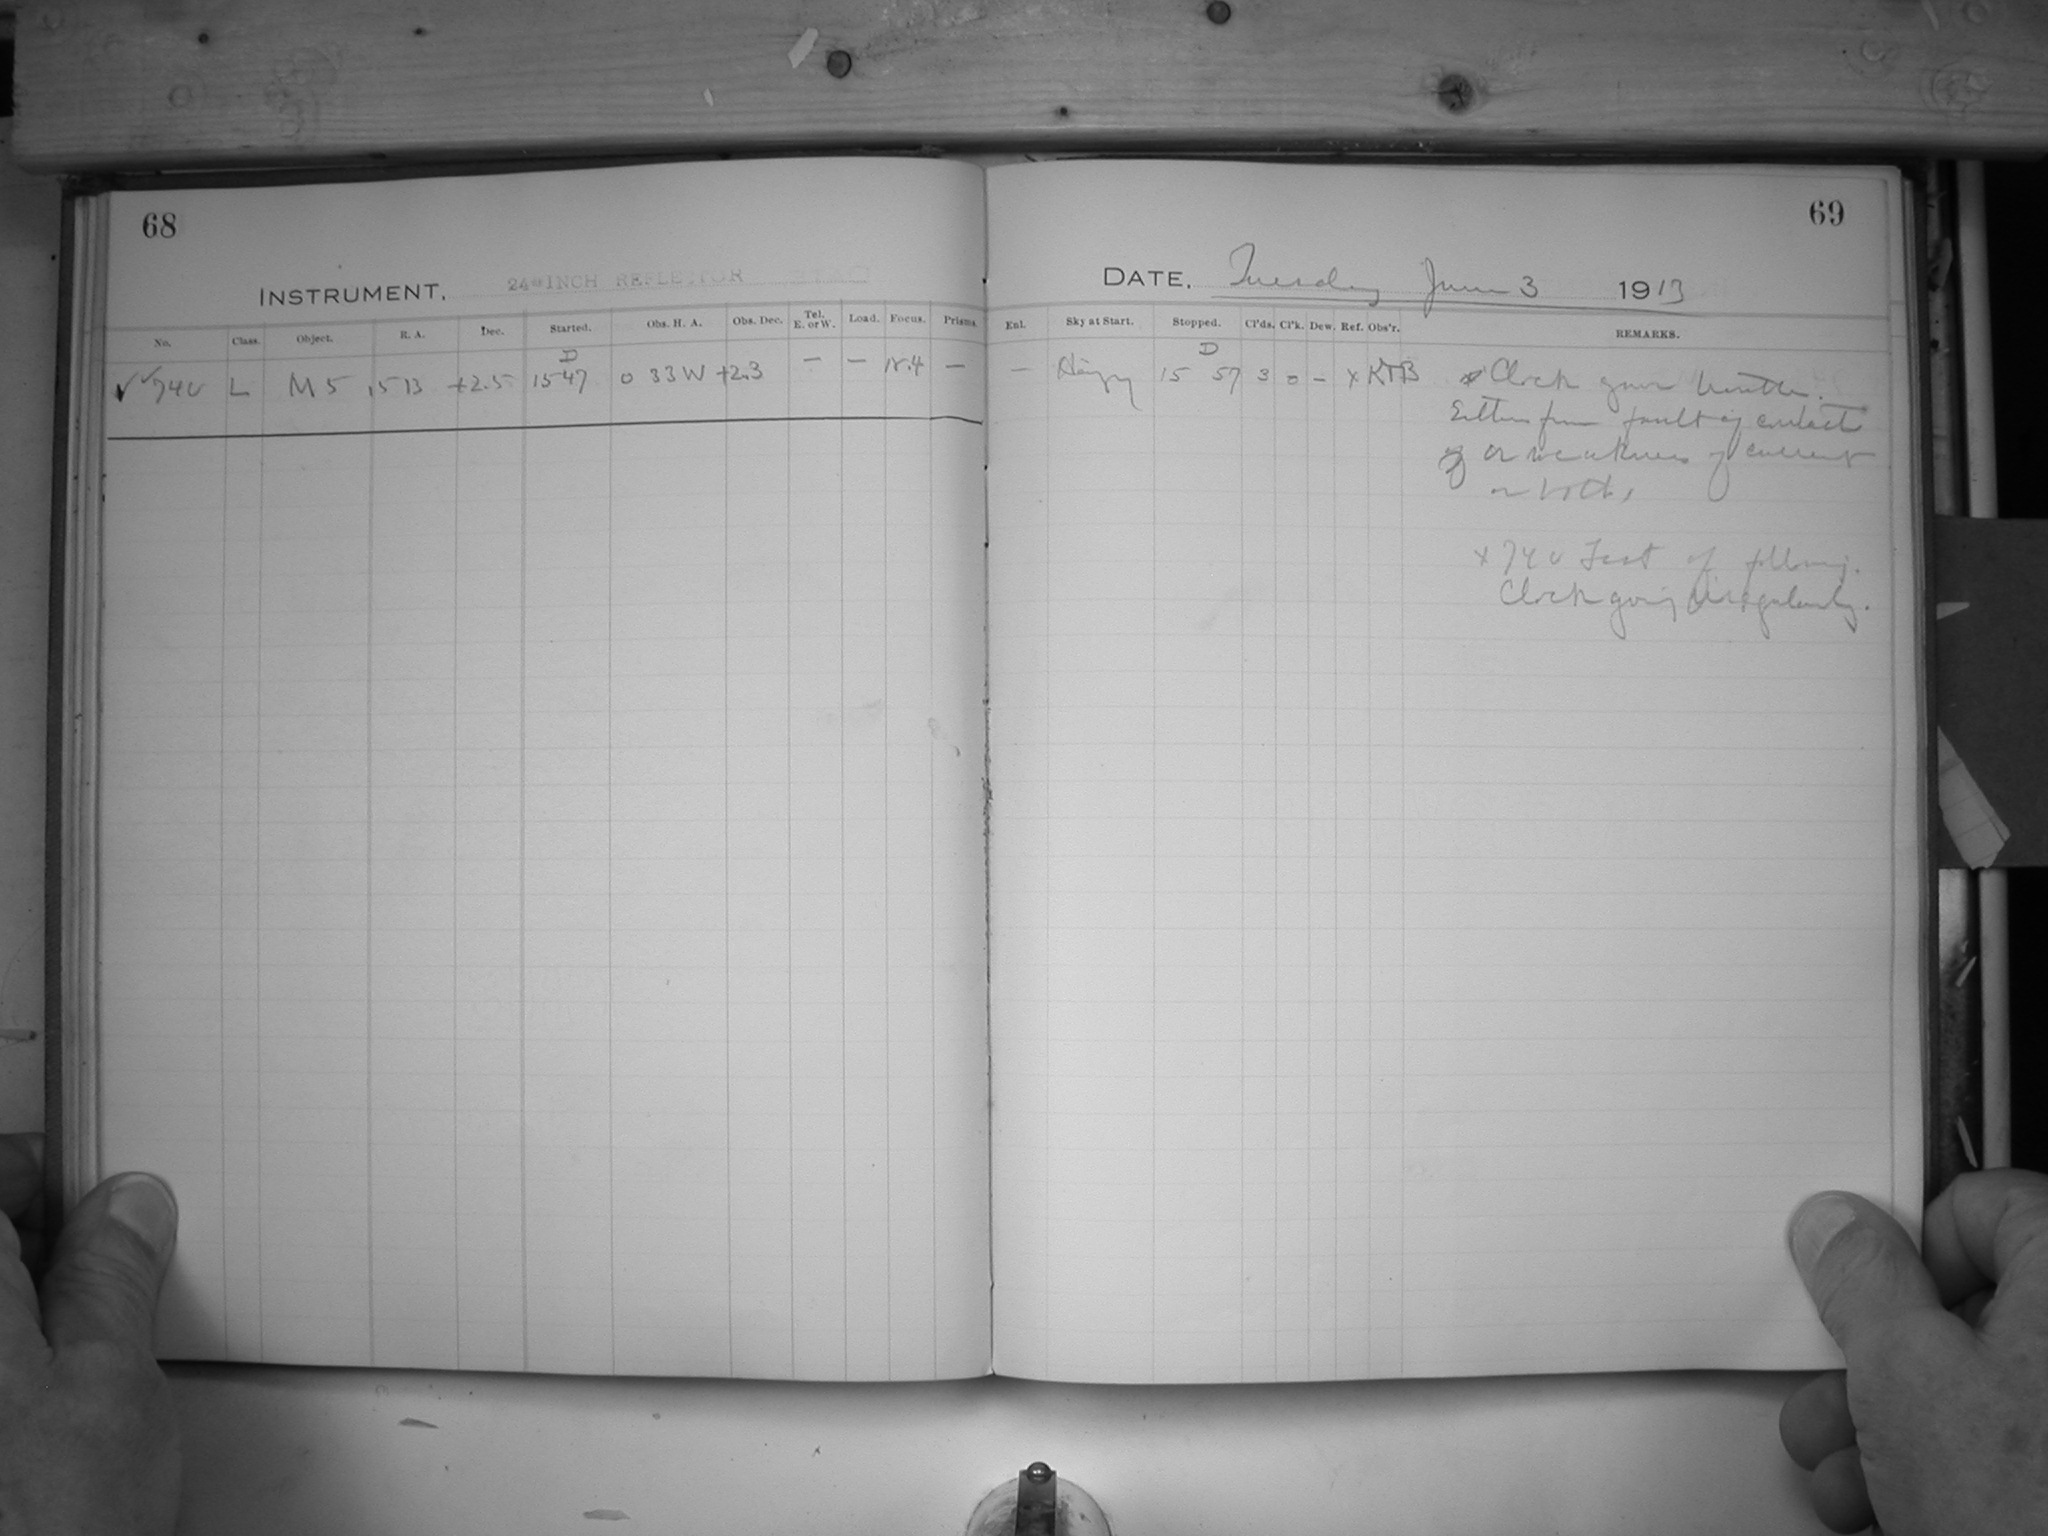 68
INSTRUMENT. 24-INCH REFLECTOR
No. Class. Object. R. A. Dec. Started. Obs. H. A. Obs. Dec. Tel. E. or W. Load. Focus. Prisms.
D
✓ ✓ 740 L M 5 15 13 +2.5 15 47 0 33 W +2.3 — — 15.4 —
69
DATE. Tuesday June 3 1913
Enl. Sky at Start. Stopped. Cl'ds. Cl'k. Dew. Ref. Obs'r. REMARKS.
D
— Hazy 15 57 3 0 – x Clock gives
Either from fault of contact
or weakness of current
or both.
x 740 Test of following.
Clock going irregularly.